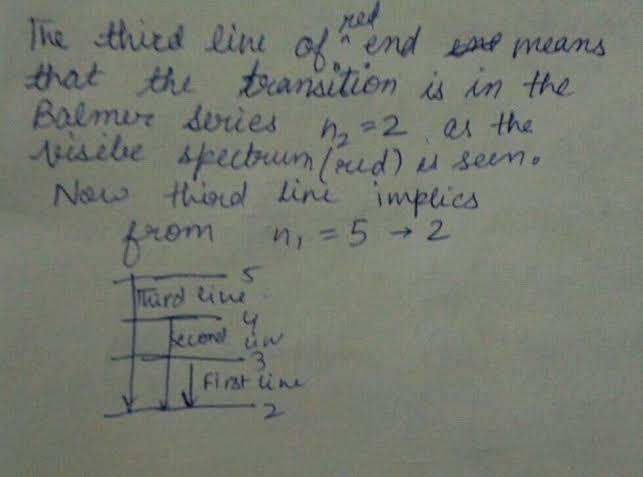 The third line of red end means
that the transition is in the
Balmer series n₂ = 2 as the
visible spectrum (red) is seen.
Now third line implies
from n₁ = 5 → 2
5
Third line
4
Second line
3
First line
2